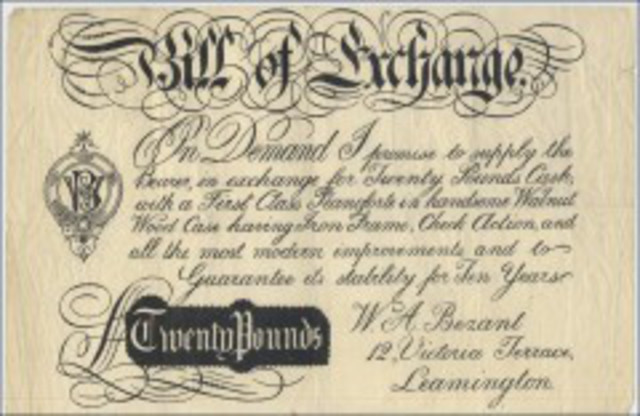 Bill of Exchange.
On Demand I promise to supply the
Bearer, in exchange for Twenty Pounds Cash,
with a First Class Pianoforte in handsome Walnut
Wood Case having Iron Frame, Check Action, and
all the most modern improvements and to
Guarantee its stability for Ten Years
£ Twenty Pounds
W. A. Bezant
12, Victoria Terrace,
Leamington